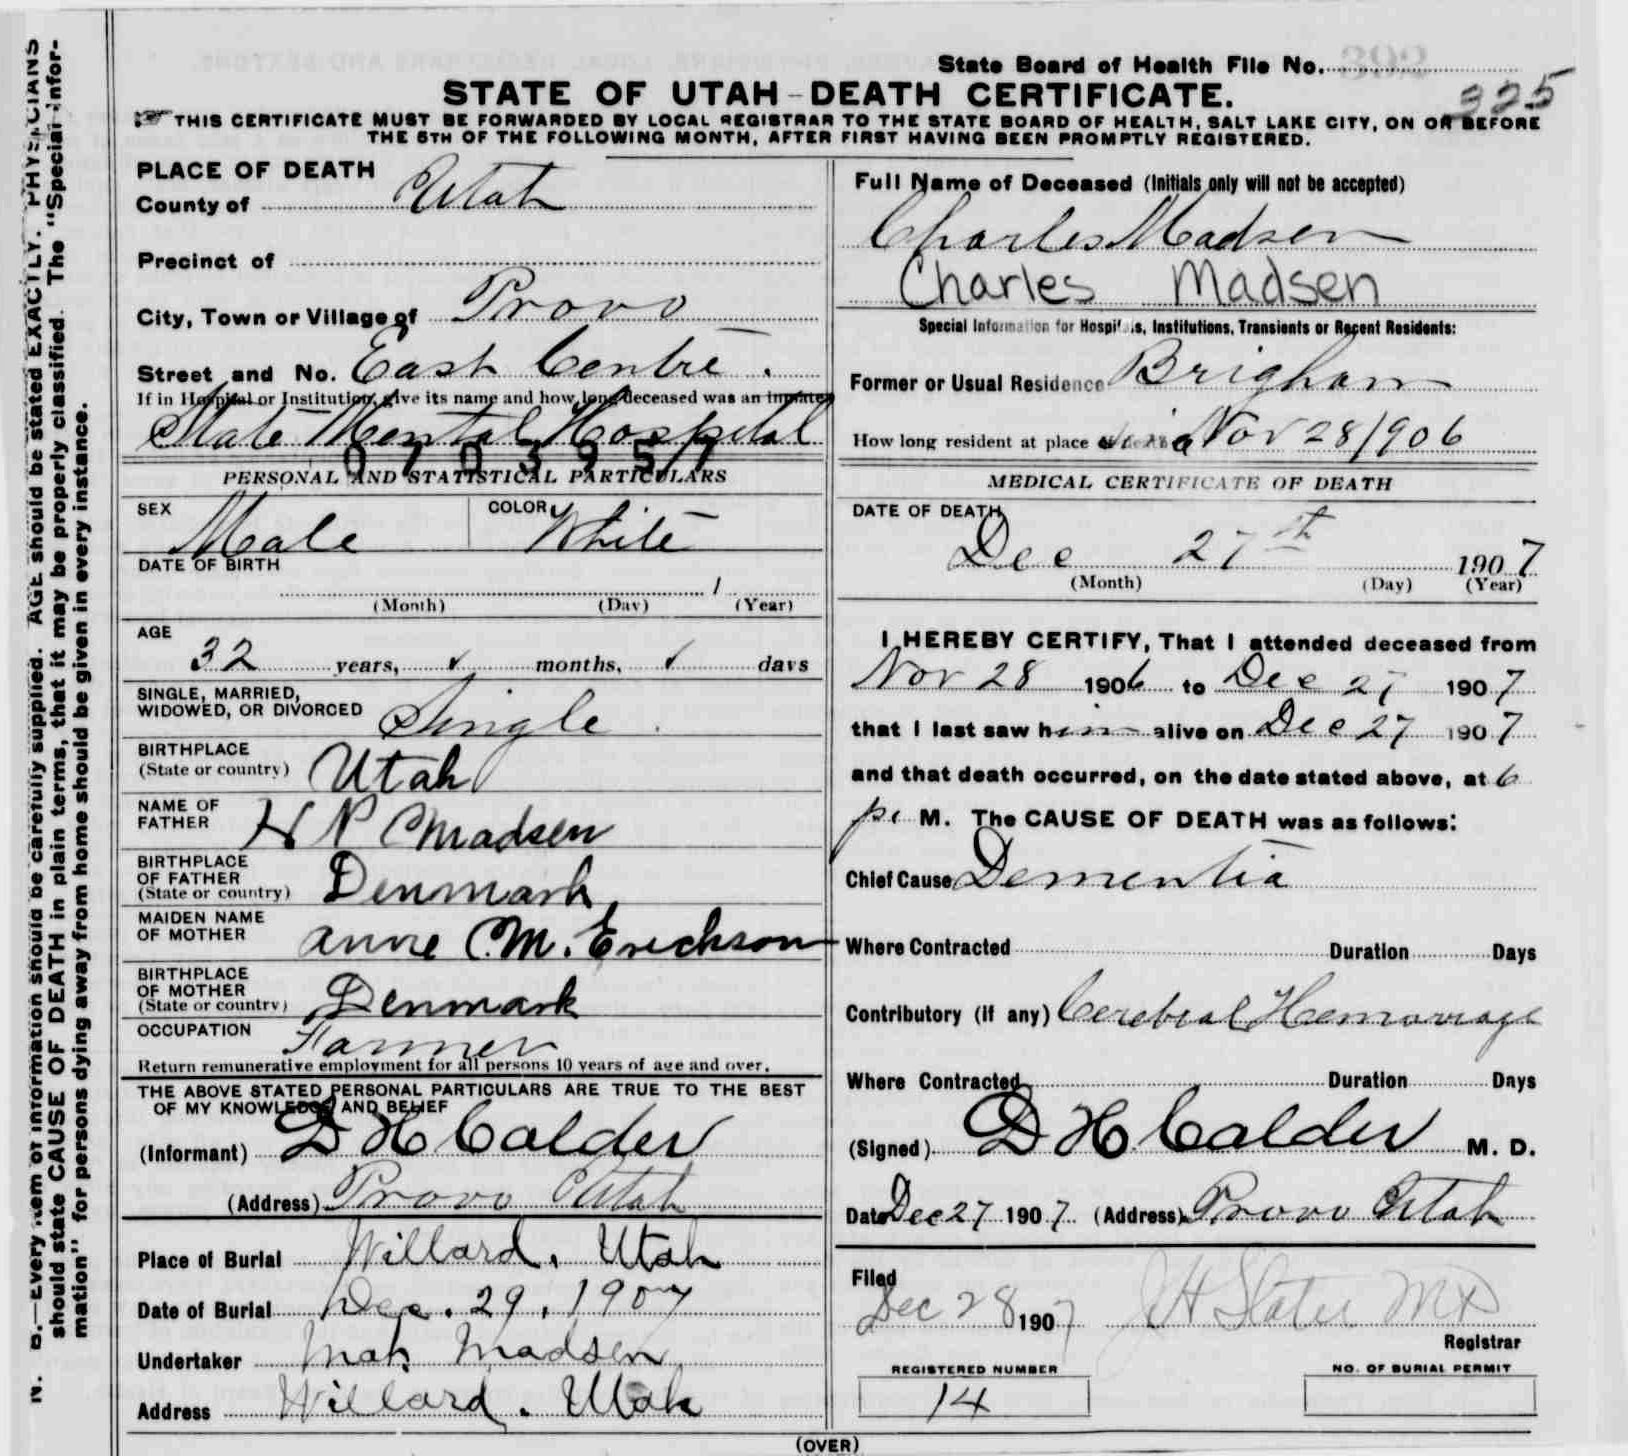 State Board of Health File No.
325
STATE OF UTAH-DEATH CERTIFICATE.
THIS CERTIFICATE MUST BE FORWARDED BY LOCAL REGISTRAR TO THE STATE BOARD OF HEALTH, SALT LAKE CITY, ON OR BEFORE
THE 5TH OF THE FOLLOWING MONTH, AFTER FIRST HAVING BEEN PROMPTLY REGISTERED.
N. B.—Every item of information should be carefully supplied. AGE should be stated EXACTLY. PHYSICIANS
should state CAUSE OF DEATH in plain terms, that it may be properly classified. The "Special Infor-
mation" for persons dying away from home should be given in every instance.
PLACE OF DEATH
County of Utah
Precinct of
City, Town or Village of Provo
Street and No. East Centre.
If in Hospital or Institution, give its name and how long deceased was an inmate
State Mental Hospital
PERSONAL AND STATISTICAL PARTICULARS
SEX Male
COLOR White
DATE OF BIRTH
1
(Month) (Day) (Year)
AGE
32 years, months, days
SINGLE, MARRIED,
WIDOWED, OR DIVORCED Single
BIRTHPLACE
(State or country) Utah
NAME OF
FATHER H P Madsen
BIRTHPLACE
OF FATHER
(State or country) Denmark
MAIDEN NAME
OF MOTHER Anne M. Erickson
BIRTHPLACE
OF MOTHER
(State or country) Denmark
OCCUPATION Farmer
Return remunerative employment for all persons 10 years of age and over.
THE ABOVE STATED PERSONAL PARTICULARS ARE TRUE TO THE BEST
OF MY KNOWLEDGE AND BELIEF
(Informant) D H Calder
(Address) Provo Utah
Place of Burial Willard, Utah
Date of Burial Dec. 29, 1907
Undertaker Madsen
Address Willard. Utah
Full Name of Deceased (Initials only will not be accepted)
Charles Madsen
Charles Madsen
Special Information for Hospitals, Institutions, Transients or Recent Residents:
Former or Usual Residence Brigham
How long resident at place Nov 28/906
MEDICAL CERTIFICATE OF DEATH
DATE OF DEATH
Dec 27th 1907
(Month) (Day) (Year)
I HEREBY CERTIFY, That I attended deceased from
Nov 28 1906 to Dec 27 1907
that I last saw him alive on Dec 27 1907
and that death occurred, on the date stated above, at 6
p. M. The CAUSE OF DEATH was as follows:
Chief Cause Dementia
Where Contracted Duration Days
Contributory (if any) Cerebral Hemorrage
Where Contracted Duration Days
(Signed) D H Calder M. D.
Date Dec 27 1907 (Address) Provo Utah
Filed
Dec 28 1907 J H Slater MD
Registrar
REGISTERED NUMBER
14
NO. OF BURIAL PERMIT
(OVER)